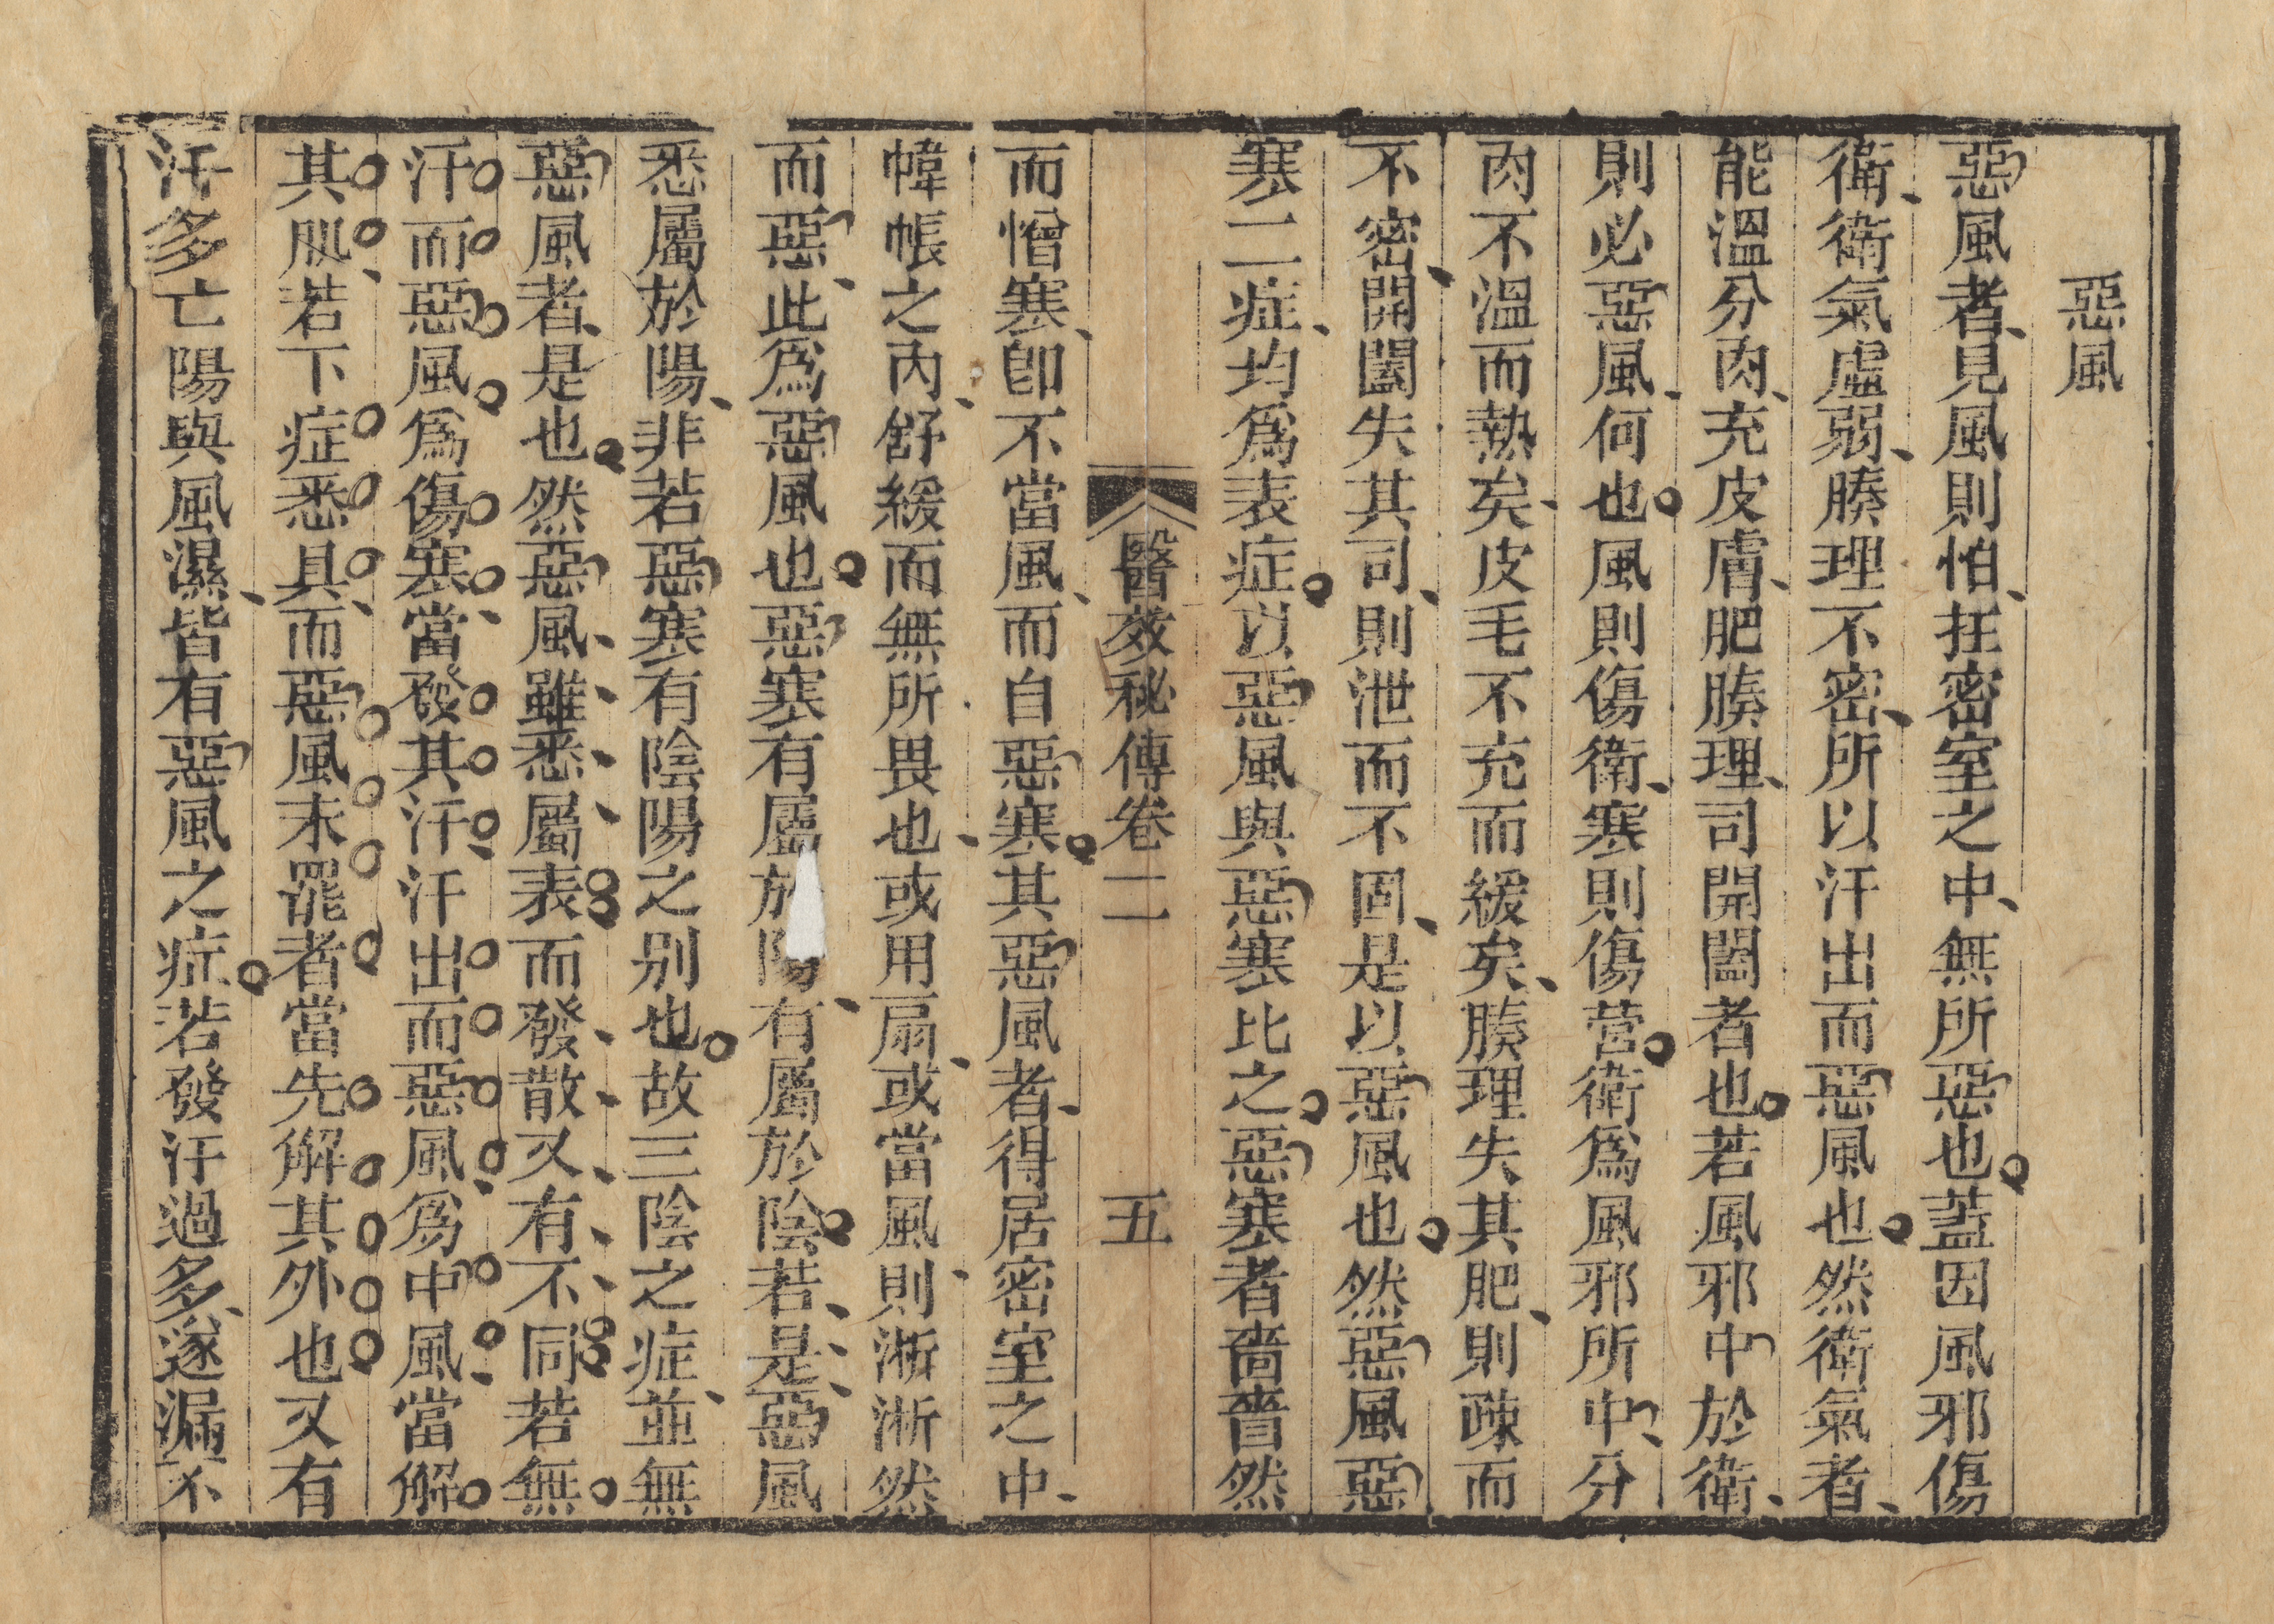 惡風
惡風者、見風則怕、在密室之中、無所惡也。蓋因風邪傷
衛、衛氣虛弱、腠理不密、所以汗出而惡風也。然衛氣者、
能溫分肉、充皮膚、肥腠理、司開闔者也。若風邪中於衛、
則必惡風、何也。風則傷衛、寒則傷营。衛爲風邪所中、分
肉不溫而熱矣、皮毛不充而緩矣、腠理失其肥、則疎而
不密、開闔失其司、則泄而不固、是以惡風也。然惡風惡
寒二症、均爲表症。以惡風與惡寒比之。惡寒者嗇嗇然
醫效秘傳卷二 五
而憎寒、卽不當風、而自惡寒。其惡風者、得居密室之中、
幃帳之內、舒緩而無所畏也、或用扇、或當風、則淅淅然
而惡、此爲惡風也。惡寒有屬於陽、有屬於陰。若是惡風
悉屬於陽、非若惡寒有陰陽之别也。故三陰之症、並無
惡風者、是也。然惡風、雖悉屬表。而發散又有不同。若無
汗而惡風爲傷寒、當發其汗、汗出而惡風、爲中風、當解
其肌、若下症悉具、而惡風未罷者當先解其外也又有
汗多亡陽與風濕、皆有惡風之症。若發汗過多、遂漏不